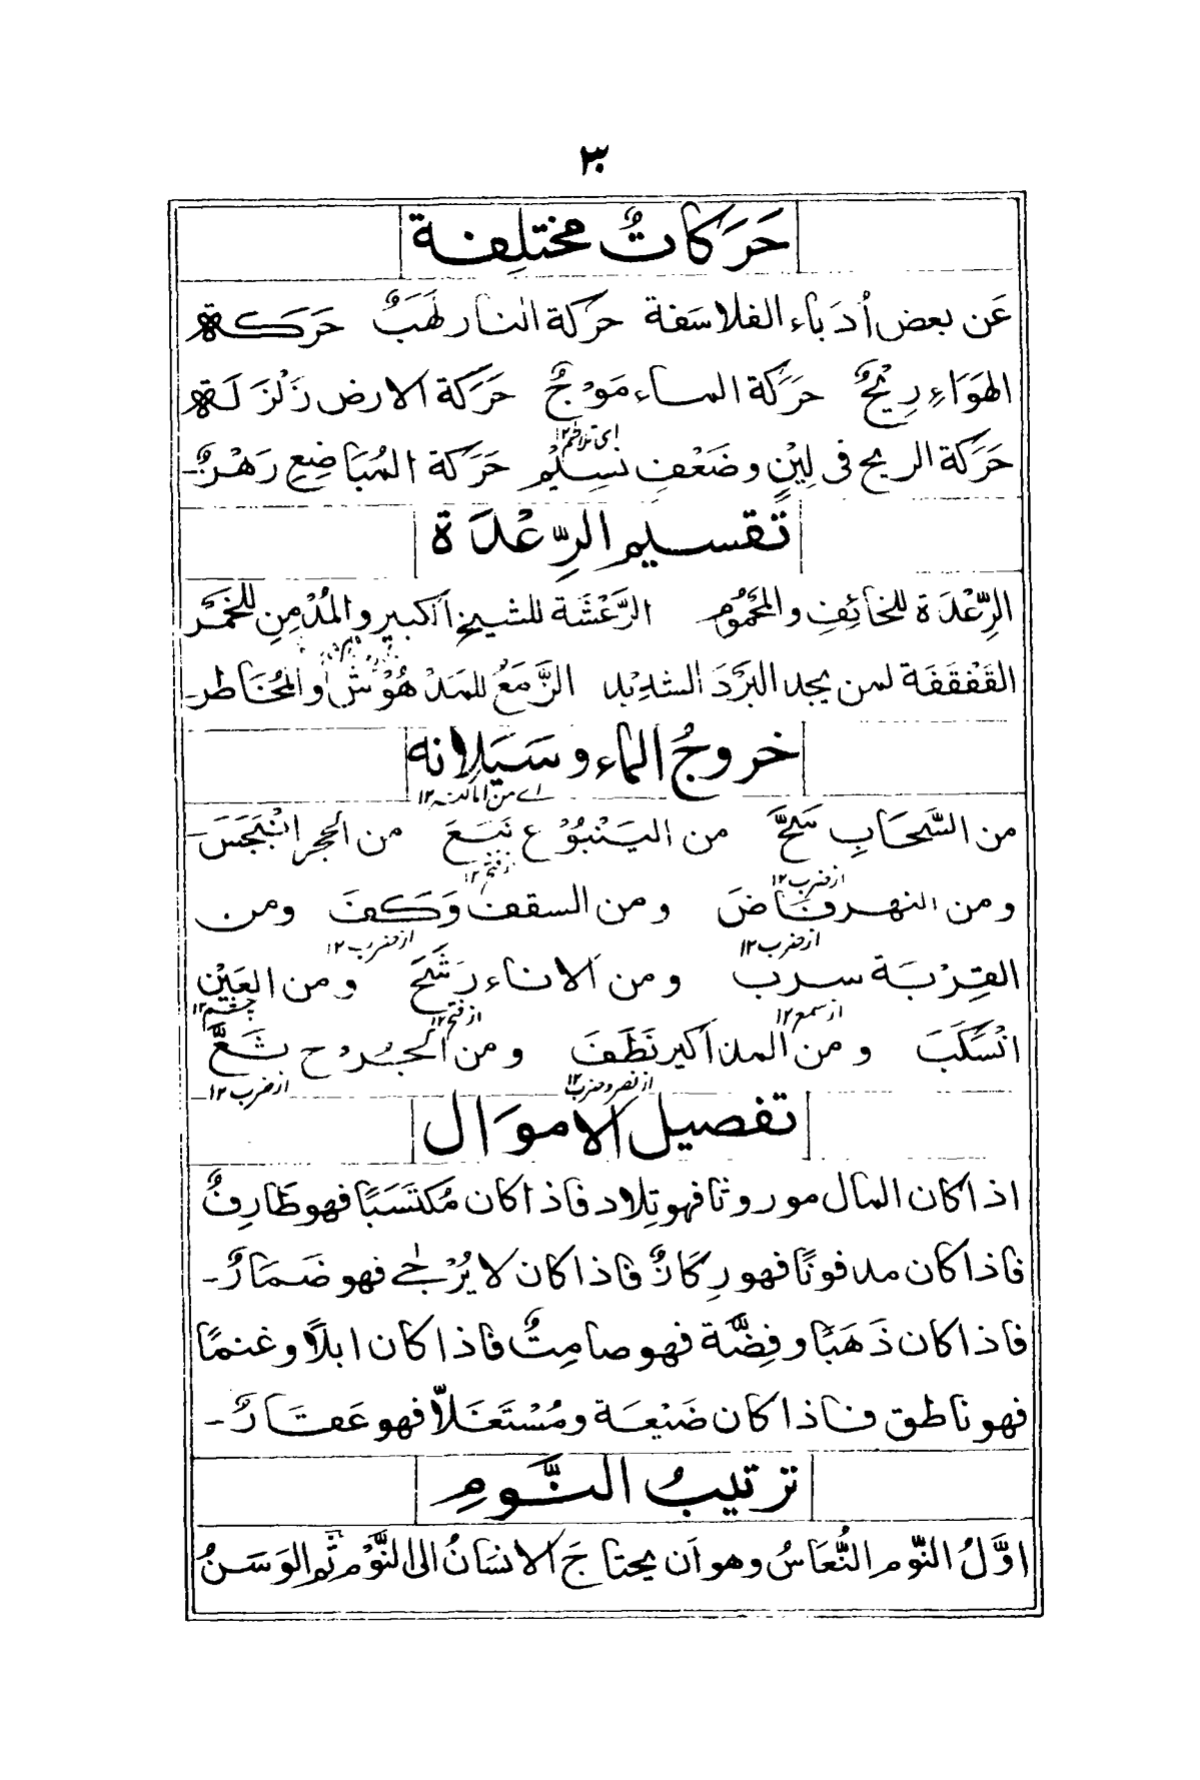 ٣٠
حَرَكاتٌ مختلِفة
عَن بعض اُدَباء الفلاسَفة حرَكة النار لَهَبٌ حَرَكة
الهَوَاءِ رِيْحٌ حَرَكة الماء مَوْجٌ حَرَكة الارض زَلْزَلة
حَرَكة الريح فى لِيْنٍ وضَعْفٍ نَسِيْم حَرَكة المُبَاضِعِ رَهْزٌ-
تَقسيم الرِّعْدَة
الرِّعْدَة للخائِفِ والمَحْمُوْم الرَّعْشَة للشيخِ الكبير والمُدْمِنِ للخَمْر
القَفْقَفَة لمن يجد البَرْدَ الشديد الزَّمَعُ للمَدْهُوْش والمُخَاطر-
خروجُ الماء وسَيَلانه
اے من اماكنه ١٢
من السَّحَابِ سَحَّ من اليَنْبُوْع نَبَعَ من الحجر انْبَجَسَ-
از ضرب ١٢ از فتح ١٢
ومن النهر فَاضَ ومن السقف وَكَفَ ومن
از ضرب ١٢ از ضرب ١٢
القِرْبَة سرب ومن الاناء رَشَحَ ومن العَيْن
از سمع ١٢ از فتح ١٢ چشم ١٢
انْسَكَبَ ومن المذاكير نَطَفَ ومن الجُرُوح ثَعَّ
از نصر وضرب ١٢ از ضرب ١٢
تفصيل الاموَال
اذا كان المال موروثا فهو تِلاد فاذا كان مُكتَسَبًا فهو طَارِفٌ
فاذا كان مدفونًا فهو رِكَازٌ فاذا كان لا يُرْجٰى فهو ضَمَارٌ-
فاذا كان ذَهَبًا وفِضَّة فهو صامِتٌ فاذا كان ابلًا وغنمًا
فهو ناطق فاذا كان ضَيْعَة ومُسْتَغَلّا فهو عَقَارٌ-
ترتيبُ النَّومِ
اوَّلُ النّوم النُّعَاسُ وهو اَن يحتاجَ الانسَانُ الى النَّوْم ثم الوَسَنُ